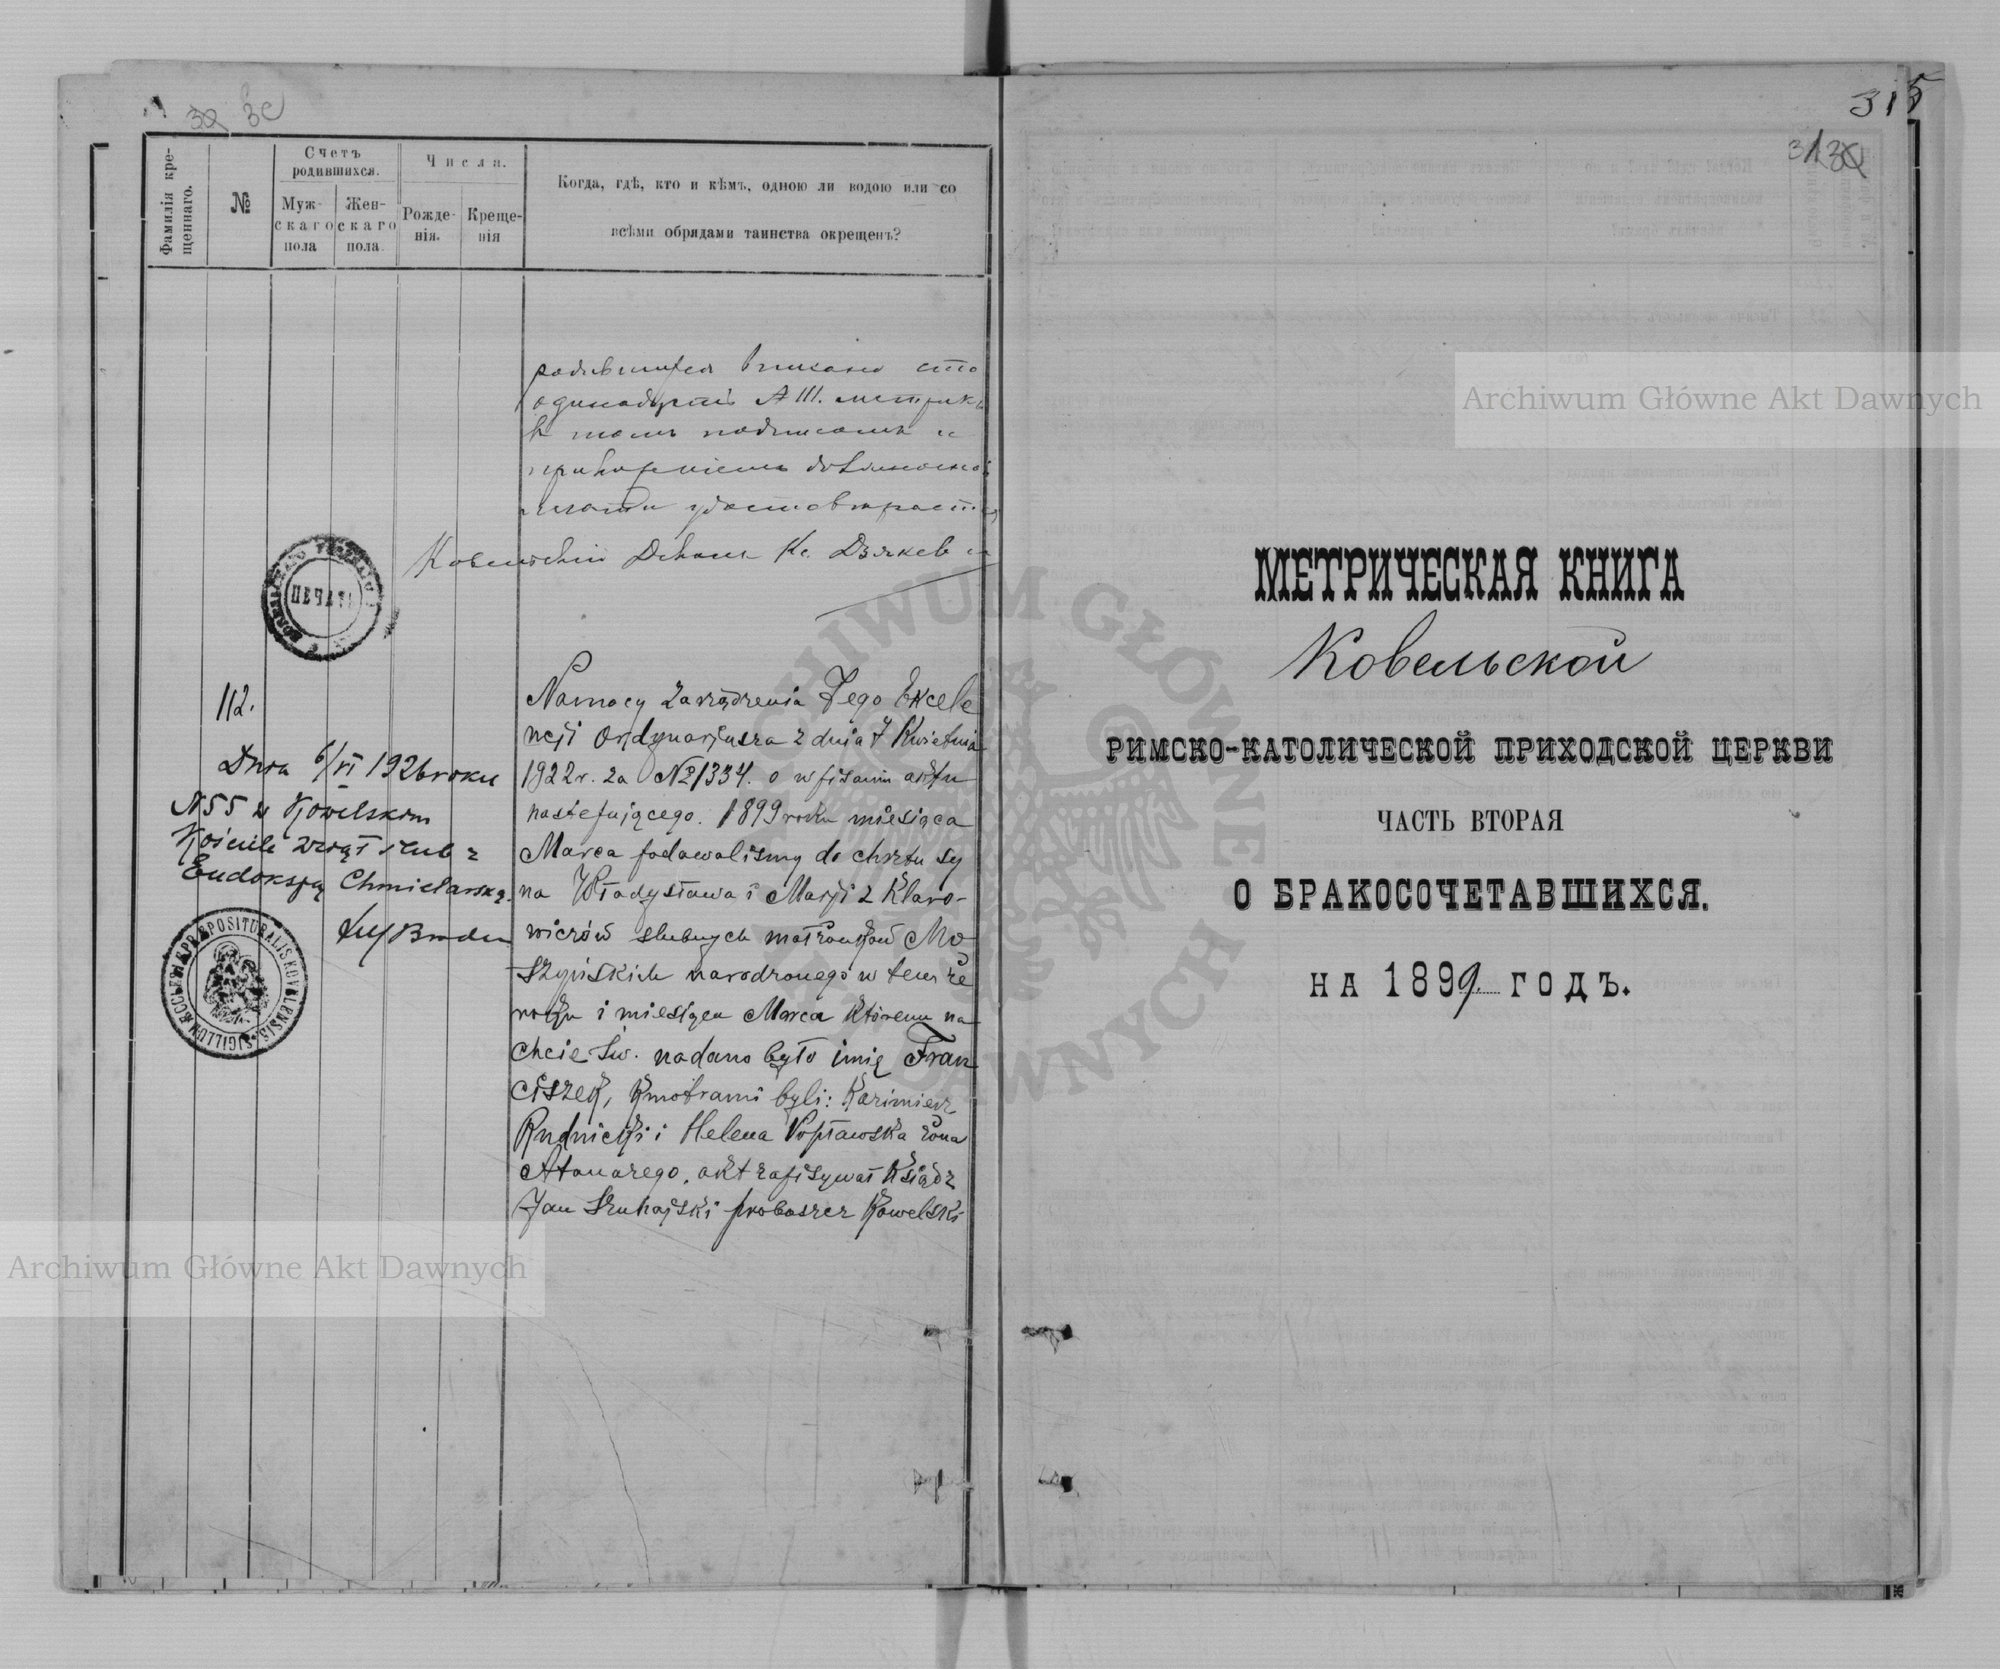 30 30
Фамилія кре-
щеннаго.
№
Счетъ
родившихся.
Муж-
скаго
пола
Жен-
скаго
пола.
Числа.
Рожде-
нія.
Креще-
нія
Когда, гдѣ, кто и кѣмъ, одною ли водою или со
всѣми обрядами таинства окрещенъ?
родившихся вписано сто
одинадцать № 111. метрикъ
въ томъ подписомъ и
приложеніемъ должностной
печати удостовѣряетъ
Ковельскій Деканъ Кс.
ПЕЧАТЬ
112.
Dnia 6/VI 1926 roku
N 55 w Kowelskim
Kościele wziął ślub z
Eudoksją Chmielawską.
SIGILLUM ECCLESIAE PRAEPOSITURALIS KOVELENSIS
Na mocy zarządzenia Jego Excele
ncji Ordynarjusza z dnia 7 Kwietnia
1922 r. za №1334. o wpisaniu aktu
następującego. 1899 roku miesiąca
Marca podawaliśmy do chrztu sy
na Władysława i Marji z Klaro-
wiczów ślubnych małżonków Mo
szyńskich narodzonego w temże
roku i miesiącu Marca któremu na
chcie Św. nadano było imię Fran
ciszek, Kmotrami byli: Kazimierz
Rudnicki i Helena Popławska żona
Atanazego, akt zapisywał Ksiądz
Jan Szuhajski proboszcz Kowelski
Archiwum Główne Akt Dawnych
315
31 30
МЕТРИЧЕСКАЯ КНИГА
Ковельской
РИМСКО-КАТОЛИЧЕСКОЙ ПРИХОДСКОЙ ЦЕРКВИ
ЧАСТЬ ВТОРАЯ
О БРАКОСОЧЕТАВШИХСЯ.
НА 1899 ГОДЪ.
Archiwum Główne Akt Dawnych
ARCHIWUM GŁÓWNE AKT DAWNYCH